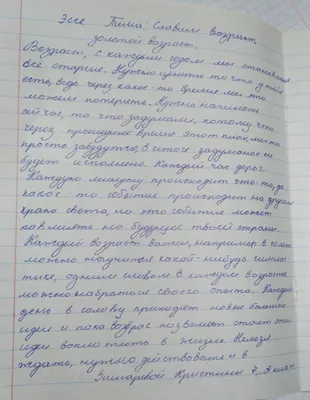 Эссе Тема: Славим возраст,
золотой возраст.
Возраст, с каждым годом мы становимся
всё старше. Нужно ценить то что у тебя
есть, ведь через какое-то время мы это
можем потерять. Нужно начинать
сейчас, то что задумали, потому что
через прошедшее время этот план, мечта
просто забудутся, в итоге задуманое не
будет исполнено. Каждый час дорог.
Каждую минуту происходит что-то, да
какое-то событие происходит на другом
краю света, но это событие может
повлиять на будущее твоей страны.
Каждый возраст важен, например в 10 лет
можно научится какой-нибудь гимнас
тике, одним словом в каждом возрасте
можно набраться своего опыта. Каждый
день в голову приходят новые
идеи и пока возраст позволяет стоит эти
идеи воплотить в жизнь. Нельзя
ждать, нужно действовать и в
Кристины 7 А класс